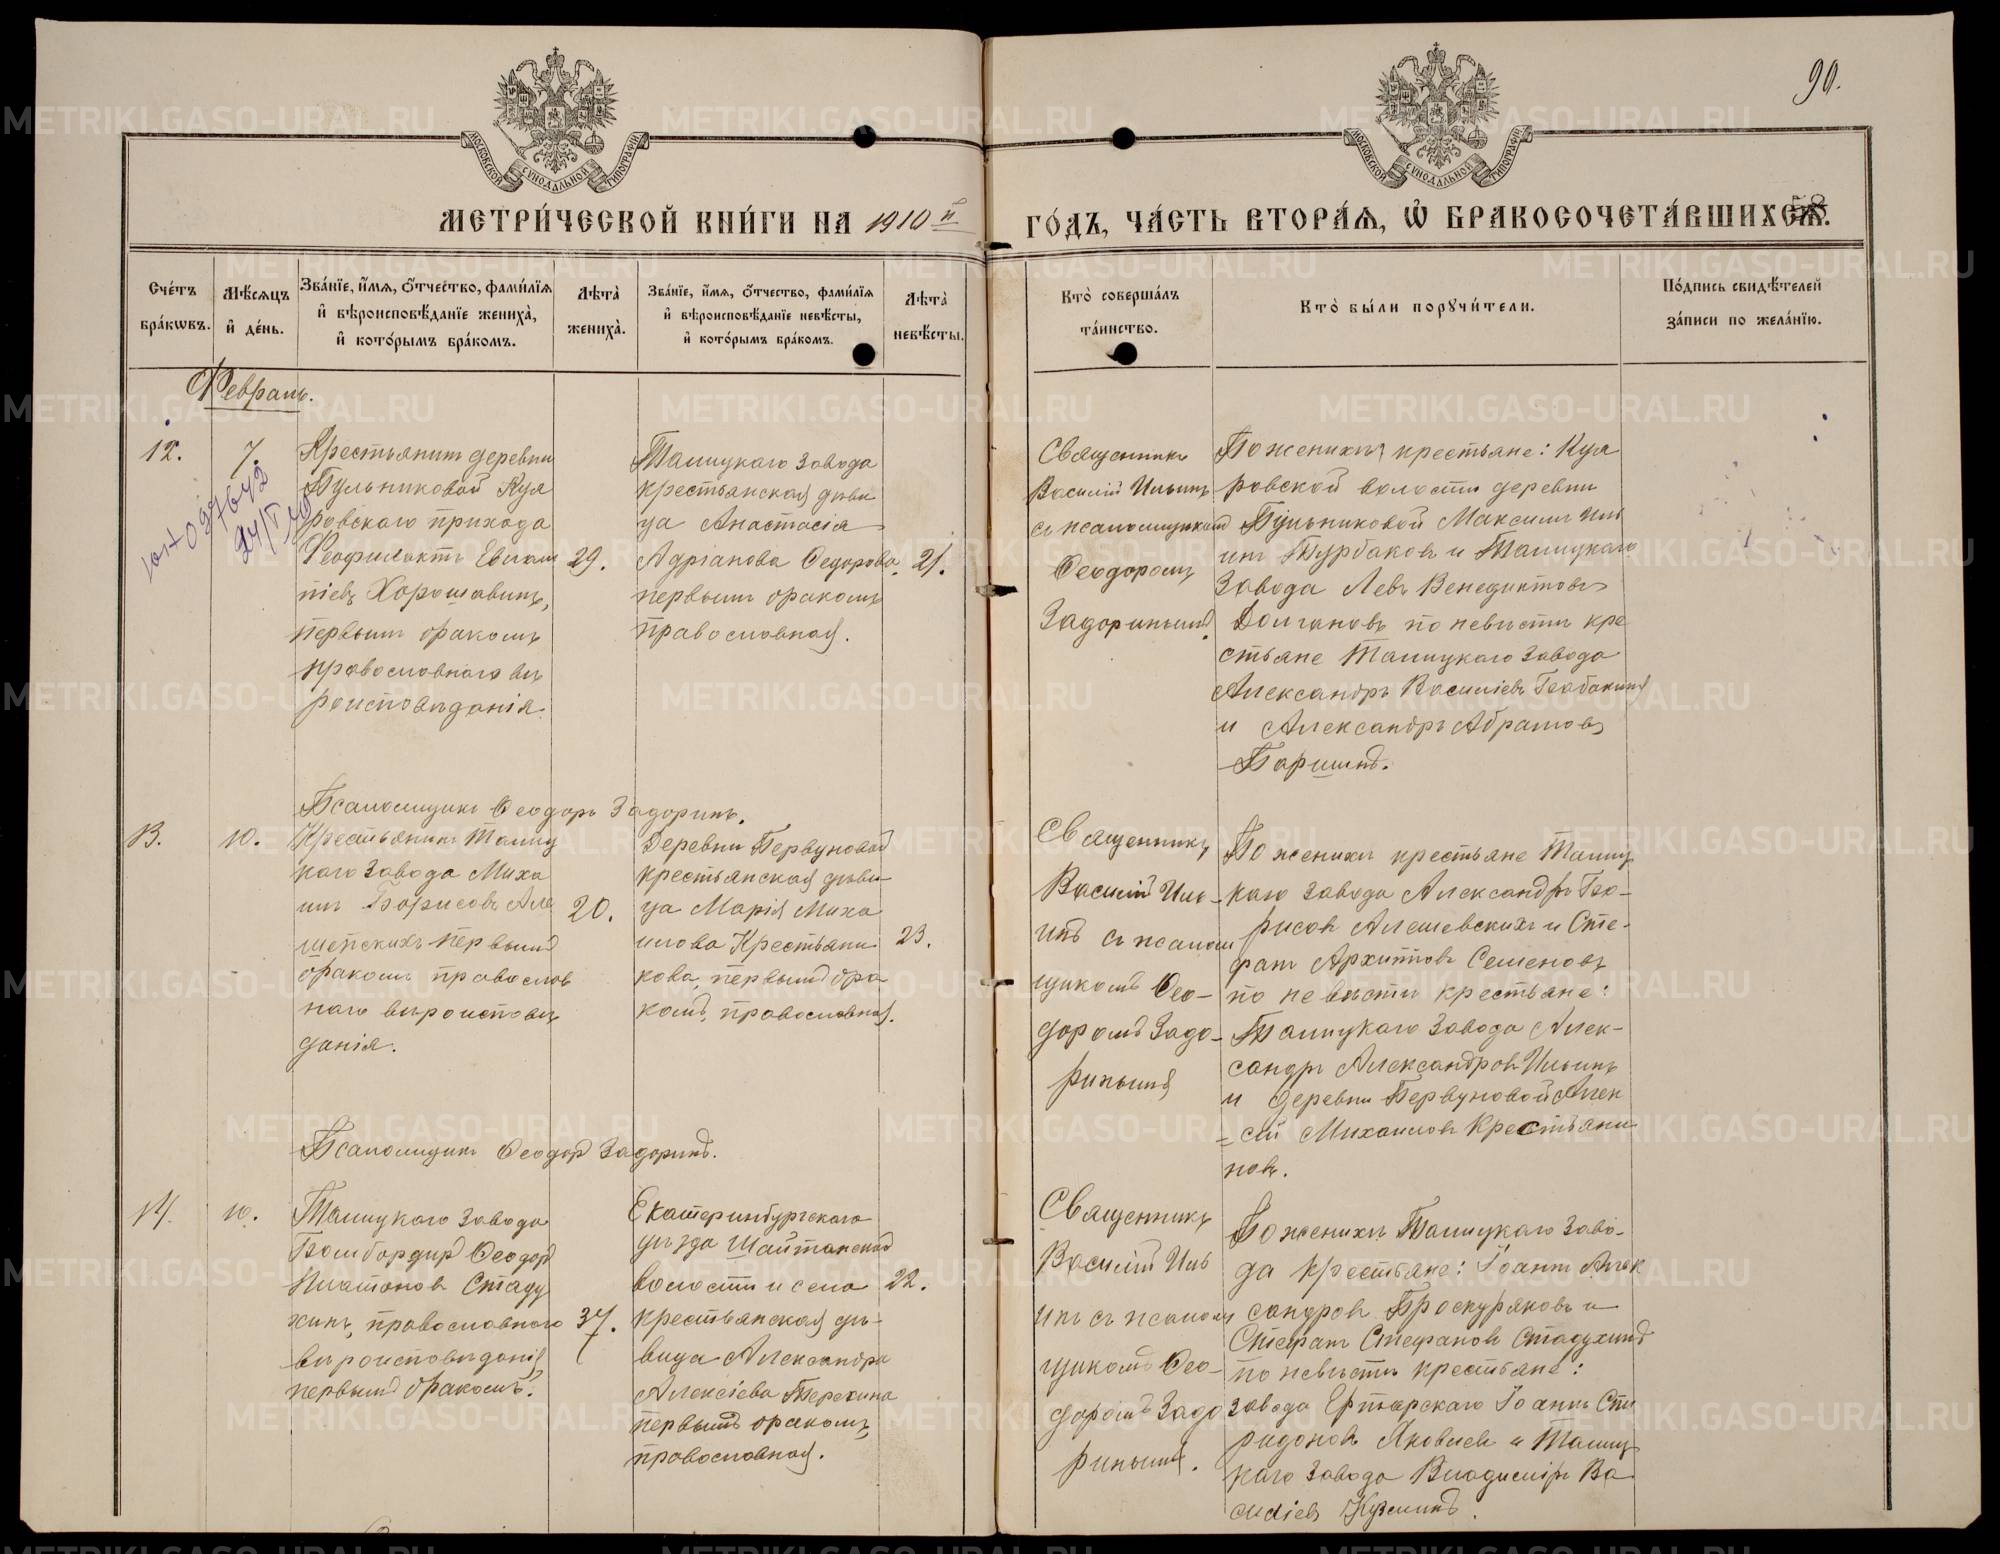 90.
МОСКОВСКОЙ СУНОДАЛЬНОЙ ТИПОГРАФІИ
МОСКОВСКОЙ СУНОДАЛЬНОЙ ТИПОГРАФІИ
МЕТРИ́ЧЕСКОЙ КНИ́ГИ НА 1910й
ГО́ДЪ, ЧА́СТЬ ВТОРА́Я, Ѽ БРАКОСОЧЕТА́ВШИХСЯ.
58
Сче́тъ бра́кωвъ.
Мѣ́сяцъ и҆ де́нь.
Зва́нїе, и҆́мя, ѻ҆́тчество, фами́лїя и҆ вѣроисповѣ́данїе жениха̀, и҆ кото́рымъ бра́комъ.
Лѣта̀ жениха̀.
Зва́нїе, и҆́мя, ѻ҆́тчество, фами́лїя и҆ вѣроисповѣ́данїе невѣ́сты, и҆ кото́рымъ бра́комъ.
Лѣта̀ невѣ́сты.
Кто̀ соверша́лъ та́инство.
Кто̀ бы́ли порꙋчи́тели.
По́дпись свидѣ́телей за́писи по жела́нїю.
Февраль.
12.
7.
Крестьянинъ деревни
Пульниковой Куя
ровскаго прихода
Феофилактъ Евлам
піевъ Хорошавинъ,
первымъ бракомъ
православнаго вѣ
роисповѣданія.
29.
Талицкаго завода
крестьянская дѣви
ца Анастасія
Адріанова Ѳедорова,
первымъ бракомъ
православная.
21.
Священникъ
Василій Ильинъ
съ псаломщикомъ
Ѳеодоромъ
Задоринымъ.
По женихѣ крестьяне: Куя
ровской волости деревни
Пульниковой Максимъ Иль
инъ Турбаковъ и Талицкаго
завода Левъ Венедиктовъ
Долгановъ по невѣстѣ кре
стьяне Талицкаго завода
Александръ Василіевъ
и Александръ Абрамовъ
Псаломщикъ Ѳеодоръ Задоринъ.
13.
10.
Крестьянинъ Талиц
каго завода Миха
илъ Борисовъ Але
шевскихъ первымъ
бракомъ православ
наго вѣроисповѣ
данія.
20.
Деревни Первуновой
крестьянская дѣви-
ца Марія Миха
илова Крестьяни
кова, первымъ бра
комъ, православная.
23.
Священникъ
Василій Иль-
инъ съ псалом
щикомъ Ѳео-
доромъ Задо-
ринымъ
По женихѣ крестьяне Талиц
каго завода Александръ Бо-
рисовъ Алешевскихъ и Сте-
фанъ Архиповъ Семеновъ
по невѣстѣ крестьяне:
Талицкаго завода Алек-
сандръ Александровъ Ильинъ
и деревни Первуновой Алек
-сѣй Михаиловъ Крестьяни
новъ.
Псаломщикъ Ѳеодоръ Задоринъ.
14.
10.
Талицкаго завода
Бомбардиръ Ѳеодоръ
Платоновъ Стаду
хинъ, православнаго
вѣроисповѣданія,
первымъ бракомъ.
37.
Екатеринбургскаго
уѣзда Шайтанской
волости и села
крестьянская дѣ-
вица Александра
Алексіева Терехина
первымъ бракомъ,
православная.
22.
Священникъ
Василій Иль
инъ съ псалом
щикомъ Ѳео-
доромъ Задо
ринымъ.
По женихѣ Талицкаго заво-
да крестьяне: Іоаннъ Алек
сандровъ Проскуряковъ и
Стефанъ Стефановъ Стадухинъ
по невѣстѣ крестьяне:
завода Ертарскаго Іоаннъ Спи
ридоновъ Яковлевъ и Талиц
каго завода Владиміръ Ва
силіевъ Кузминъ.
METRIKI.GASO-URAL.RU